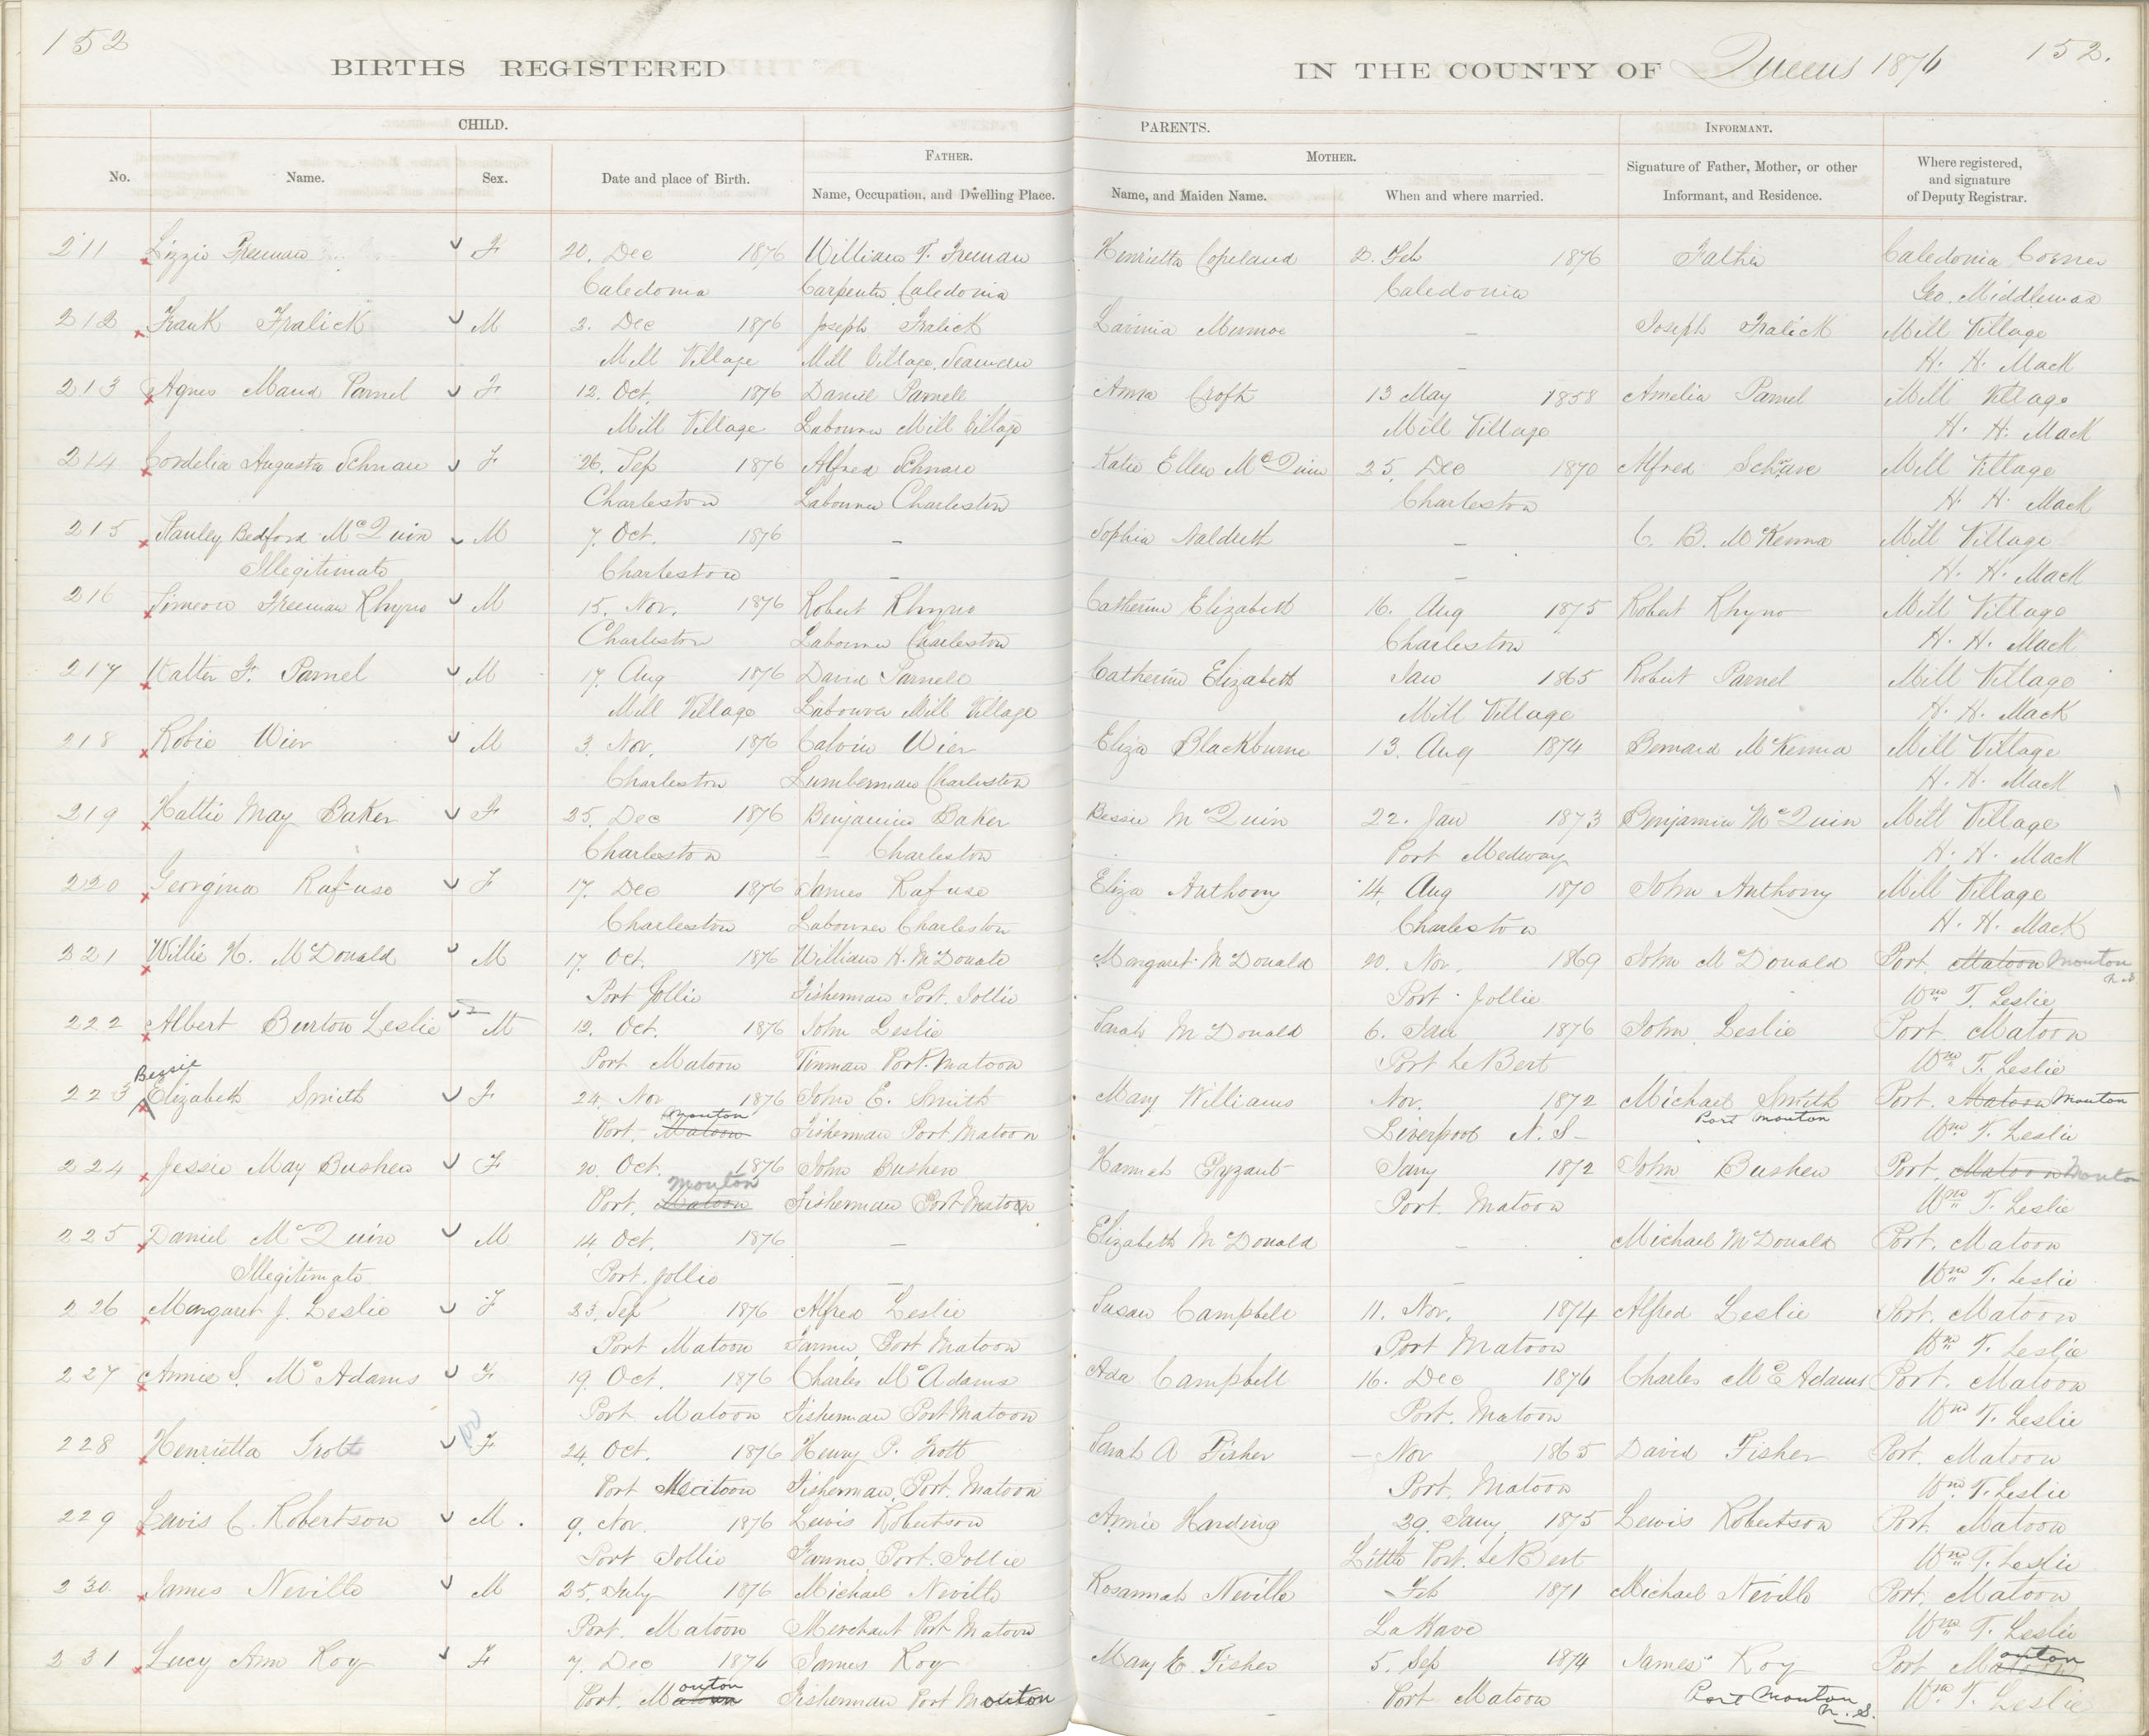 152
BIRTHS REGISTERED
IN THE COUNTY OF Queens 1876
152.
CHILD.
PARENTS.
INFORMANT.
No.
Name.
Sex.
Date and place of Birth.
FATHER.
Name, Occupation, and Dwelling Place.
MOTHER.
Name, and Maiden Name.
When and where married.
Signature of Father, Mother, or other
Informant, and Residence.
Where registered,
and signature
of Deputy Registrar.
211 Lizzie Freeman F 20. Dec 1876 William T. Freeman Henrietta Copeland 2. Feb 1876 Father Caledonia Corner
Caledonia Carpenter Caledonia Caledonia Geo. Middlemas
212 Frank Fralick M 2. Dec 1876 Joseph Fralick Lavinia Munroe – Joseph Fralick Mill Village
Mill Village Mill Village, – H. H. Mack
213 Agnes Maud Parnel F 12. Oct. 1876 Daniel Parnell Anna Croft 13 May 1858 Amelia Parnel Mill Village
Mill Village Labourer Mill Village Mill Village H. H. Mack
214 Cordelia Augusta Schnare F 26. Sep 1876 Alfred Schnare Katie Ellen McQuin 25. Dec 1870 Alfred Schnare Mill Village
Charleston Labourer Charleston Charleston H. H. Mack
215 Stanley Bedford McQuin M 7. Oct. 1876 – Sophia – C. B. McKenna Mill Village
Illegitimate Charleston – – H. H. Mack
216 Simeon Freeman Rhyno M 15. Nov. 1876 Robert Rhyno Catherine Elizabeth 16. Aug 1875 Robert Rhyno Mill Village
Charleston Labourer Charleston Charleston H. H. Mack
217 Walter F. Parnel M 17. Aug 1876 David Parnell Catherine Elizabeth Jan 1865 Robert Parnel Mill Village
Mill Village Labourer Mill Village Mill Village H. H. Mack
218 Robie Wier M 3. Nov. 1876 Calvin Wier Eliza Blackburne 13. Aug 1874 Bernard McKenna Mill Village
Charleston Lumberman Charleston – H. H. Mack
219 Hattie May Baker F 25. Dec 1876 Benjamin Baker Bessie McQuin 22. Jan 1873 Benjamin McQuin Mill Village
Charleston – Charleston Port Medway H. H. Mack
220 Georgina Rafuse F 17. Dec 1876 James Rafuse Eliza Anthony 14. Aug 1870 John Anthony Mill Village
Charleston Labourer Charleston Charleston H. H. Mack
221 Willie H. McDonald M 17. Oct. 1876 William H. McDonald Margaret McDonald 20. Nov. 1869 John McDonald Port Matoon Mouton N.S.
Port Jollie Fisherman Port. Jollie Port Jollie Wm T. Leslie
222 Albert Burton Leslie M 12. Oct. 1876 John Leslie Sarah McDonald 6. Jan 1876 John Leslie Port Matoon
Port Matoon Tinman Port Matoon Port Le Bert Wm T. Leslie
Bessie
223 Elizabeth Smith F 24. Nov 1876 John E. Smith Mary Williams Nov. 1872 Michael Smith Port. Matoon Mouton
Port. Matoon Mouton Fisherman Port Matoon Liverpool N. S– Port Mouton Wm T. Leslie
224 Jessie May Bushen F 20. Oct. 1876 John Bushen Hannah Jany 1872 John Bushen Port. Matoon Mouton
Port. Matoon Mouton Fisherman Port Matoon Port. Matoon Wm T. Leslie
225 Daniel McQuin M 14. Oct. 1876 – Elizabeth McDonald – Michael McDonald Port. Matoon
Illegitimate Port. Jollie – – Wm T. Leslie
226 Margaret J. Leslie F 23. Sep 1876 Alfred Leslie Susan Campbell 11. Nov. 1874 Alfred Leslie Port. Matoon
Port Matoon Farmer, Port Matoon Port Matoon Wm T. Leslie
227 Annie S. McAdams F 19. Oct. 1876 Charles McAdams Ada Campbell 16. Dec 1876 Charles McAdams Port. Matoon
Port. Matoon Fisherman Port Matoon Port. Matoon Wm T. Leslie
228 Henrietta Trott F 24. Oct. 1876 Henry P. Trott Sarah A Fisher – Nov 1865 David Fisher Port. Matoon
Port Matoon Fisherman, Port. Matoon Port. Matoon Wm T. Leslie
229 Lavis C. Robertson M. 9. Nov. 1876 Lewis Robertson Annie Harding 29. Jany 1875 Lewis Robertson Port. Matoon
Port Jollie Farmer, Port. Jollie Little Port. Le Bert Wm T. Leslie
230 James Neville M 25. July 1876 Michael Neville Rosannah Neville Feb 1871 Michael Neville Port. Matoon
Port. Matoon Merchant Port Matoon LaHave Wm T. Leslie
231 Lucy Ann Roy F 7. Dec 1876 James Roy Mary E. Fisher 5. Sep 1874 James Roy Port Matoon outon
Port. Matoon outon Fisherman Port Mouton Port Matoon Port Mouton N. S. Wm T. Leslie